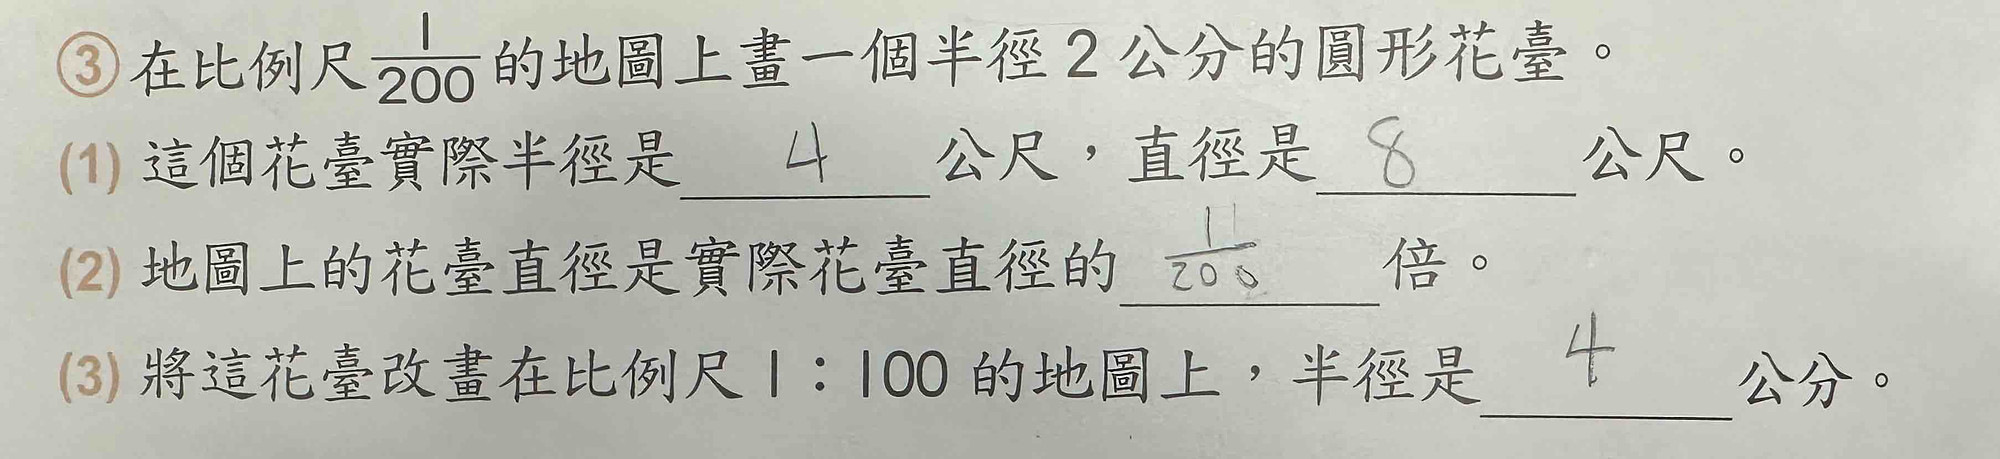 ③在比例尺1/200的地圖上畫一個半徑2公分的圓形花臺。
(1) 這個花臺實際半徑是 4 公尺，直徑是 8 公尺。
(2) 地圖上的花臺直徑是實際花臺直徑的 1/200 倍。
(3) 將這花臺改畫在比例尺1：100的地圖上，半徑是 4 公分。